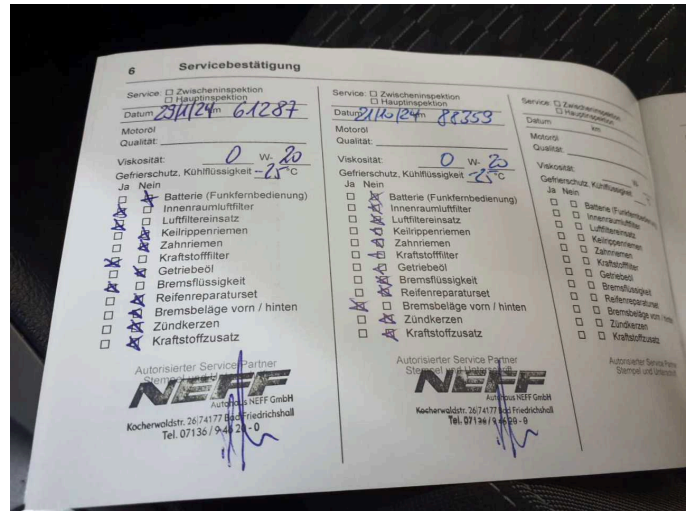 6 Servicebestätigung
Service: □ Zwischeninspektion
□ Hauptinspektion
Datum 29/1/24 km 61287
Motoröl
Qualität:
Viskosität: 0 W- 20
Gefrierschutz, Kühlflüssigkeit -25 °C
Ja Nein
Batterie (Funkfernbedienung)
Innenraumluftfilter
Luftfiltereinsatz
Keilrippenriemen
Zahnriemen
Kraftstofffilter
Getriebeöl
Bremsflüssigkeit
Reifenreparaturset
Bremsbeläge vorn / hinten
Zündkerzen
Kraftstoffzusatz
Autorisierter Service Partner
Stempel und
NEFF
Autohaus NEFF GmbH
Kocherwaldstr. 26 74177 Bad Friedrichshall
Tel. 07136 / 9 46 20 - 0
Service: □ Zwischeninspektion
□ Hauptinspektion
Datum 21/10/24 km 88353
Motoröl
Qualität:
Viskosität: 0 W- 20
Gefrierschutz, Kühlflüssigkeit -25 °C
Ja Nein
Batterie (Funkfernbedienung)
Innenraumluftfilter
Luftfiltereinsatz
Keilrippenriemen
Zahnriemen
Kraftstofffilter
Getriebeöl
Bremsflüssigkeit
Reifenreparaturset
Bremsbeläge vorn / hinten
Zündkerzen
Kraftstoffzusatz
Autorisierter Service Partner
Stempel und Unterschrift
NEFF
Autohaus NEFF GmbH
Kocherwaldstr. 26 74177 Bad Friedrichshall
Tel. 07136 / 9 46 20 - 0
Service: □ Zwischeninspektion
□ Hauptinspektion
Datum km
Motoröl
Qualität:
Viskosität: W
Gefrierschutz, Kühlflüssigkeit
Ja Nein
Batterie (Funkfernbedienung)
Innenraumluftfilter
Luftfiltereinsatz
Keilrippenriemen
Zahnriemen
Kraftstofffilter
Getriebeöl
Bremsflüssigkeit
Reifenreparaturset
Bremsbeläge vorn / hinten
Zündkerzen
Kraftstoffzusatz
Autorisierter Service Partner
Stempel und Unterschrift